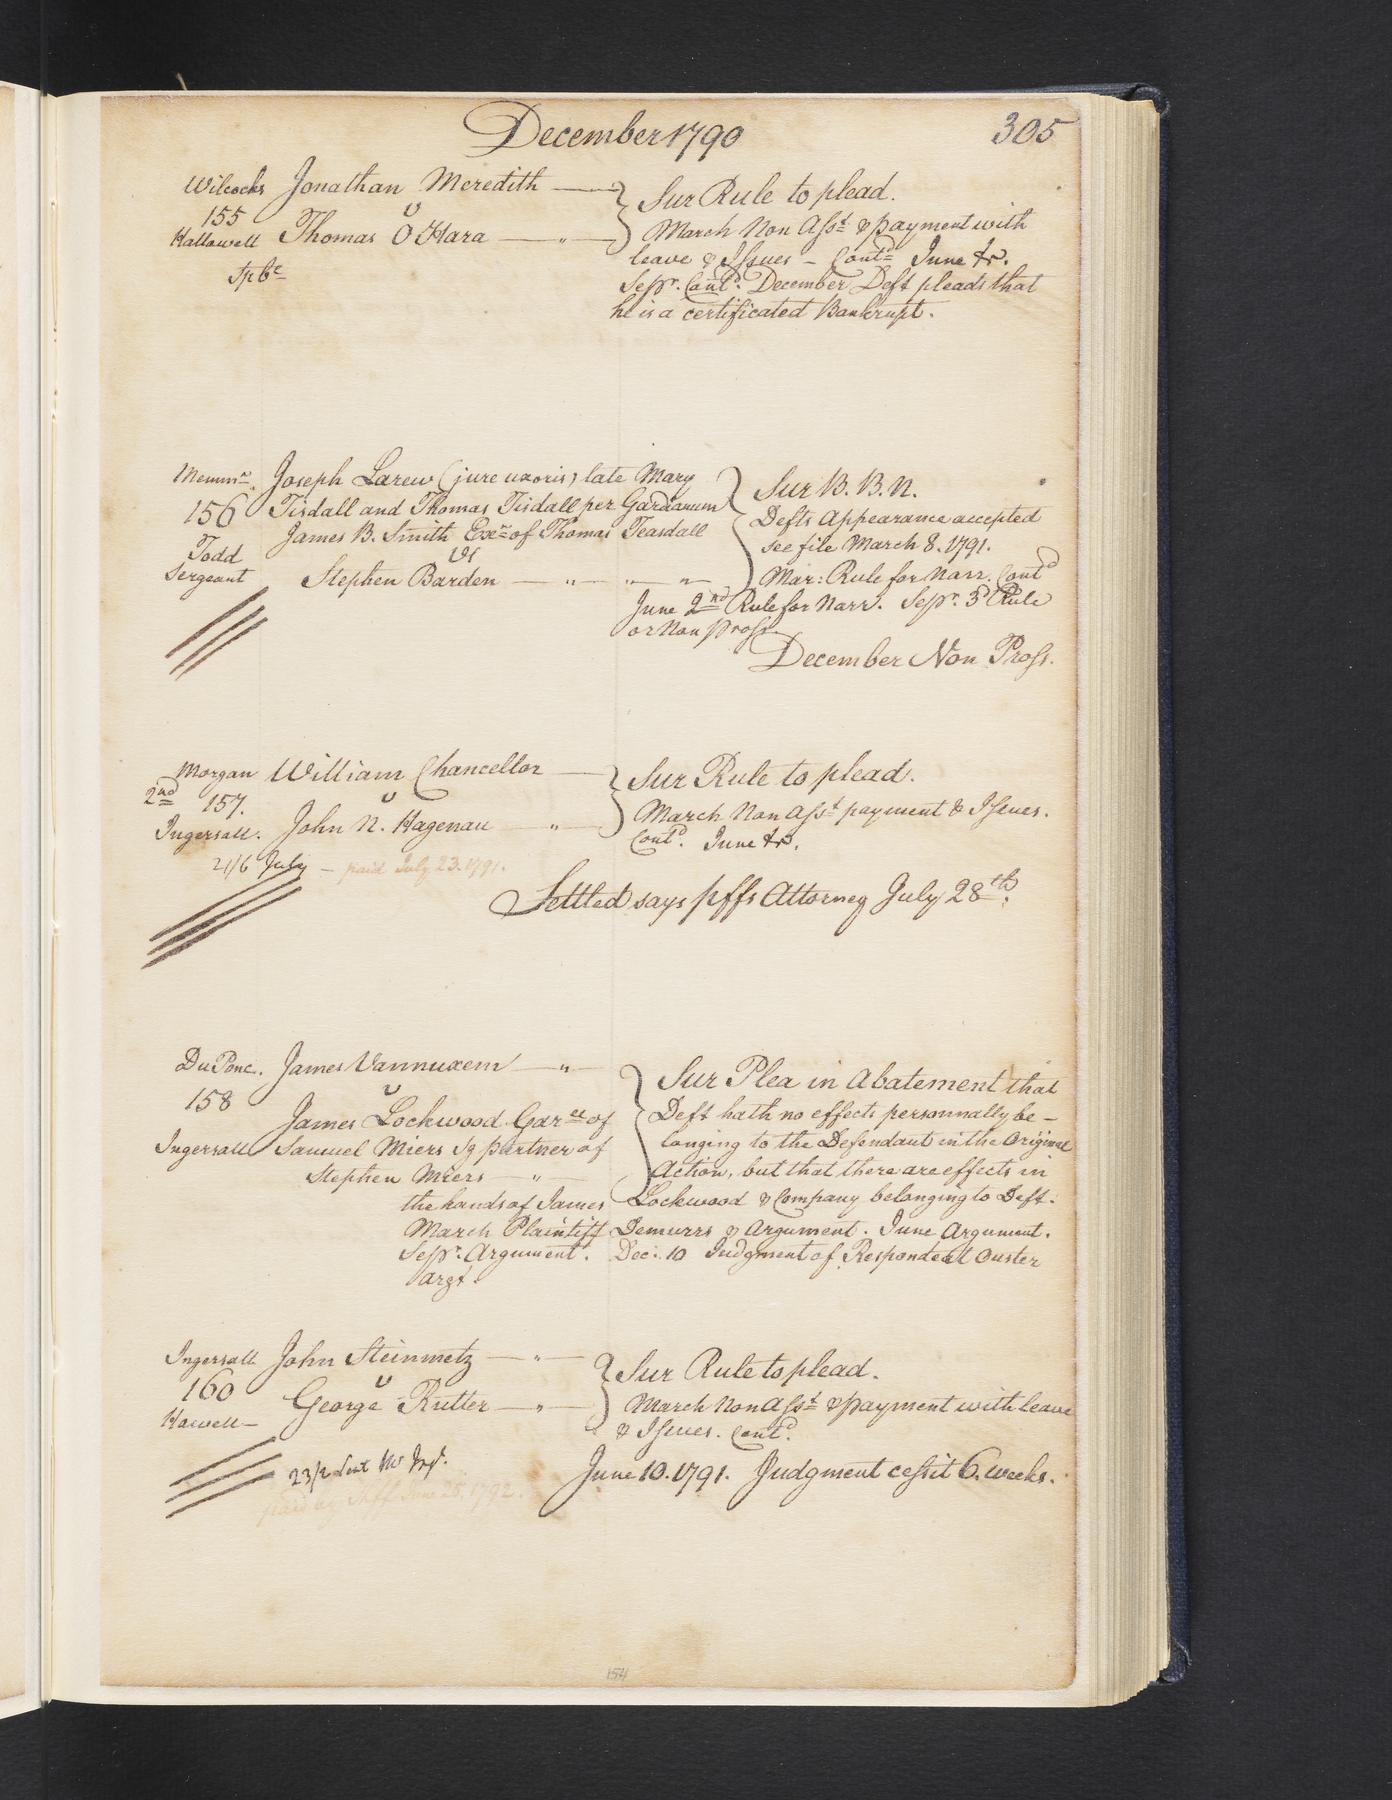 December 1790
305
Wilcocks Jonathan Meredith
155 v
Hallowell Thomas O'Hara
Sur Rule to plead.
March Non Asst & payment with
leave & Issues - Contd June tr.
Sepr. Contd. December Deft pleads that
he is a certificated Bankrupt.
Joseph Larew (jure uxoris) late Mary
156 Tisdall and Thomas Tisdall per Gardianum
James B. Smith Exr of Thomas Teasdall
Todd vs
Sergeant Stephen Barden
Sur B. B. N.
Defts Appearance accepted
see file March 8. 1791.
Mar: Rule for Narr. Contd
June 2nd Rule for Narr. Sepr. 3d Rule
or Non pross
December Non Pross.
Morgan William Chancellor
2nd 157. v
Ingersall. John N. Hagenau
21/6 July - paid July 23. 1791.
Sur Rule to plead.
March Non Asst payment & Issues.
Contd. June tr.
Settled says pffs Attorney July 28th.
DuPonc. James Vannuxem
158 v
James Lockwood Garee of
Ingersall Samuel Miers Sg partner of
Stephen Miers
Sur Plea in Abatement that
Deft hath no effects personnally be-
longing to the Defendant in the Original
Action, but that there are effects in
the hands of James Lockwood & Company belonging to Deft.
March Plaintiff Demurrs & Argument. June Argument.
Sepr. Argument. Dec: 10 Judgment of Respondeat Ouster
argt.
Ingersall John Steinmetz
160 v
Howell George Rutter
Sur Rule to plead.
March Non Asst & payment with leave
& Issues. Contd.
June 10. 1791. Judgment cessit 6. weeks.
paid by Piff June 25. 1792.
154